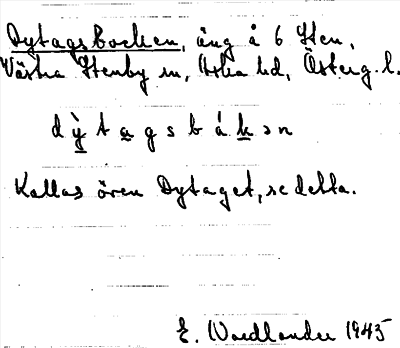 Dytagsbacken, äng å 6 Sten,
Västra Stenby sn, Aska hd, Österg. l.
dỳtagsbákən
Kallas även Dytaget, se detta.
E. Wadlander 1945